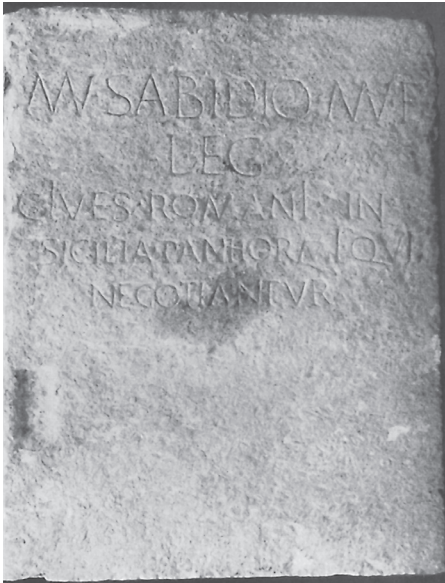 ꟿ·SABIDIO·ꟿ·F
LEG
CIVES·ROMANI·IN
SICILIA·PANHORMI·QVI
NEGOTIANTVR